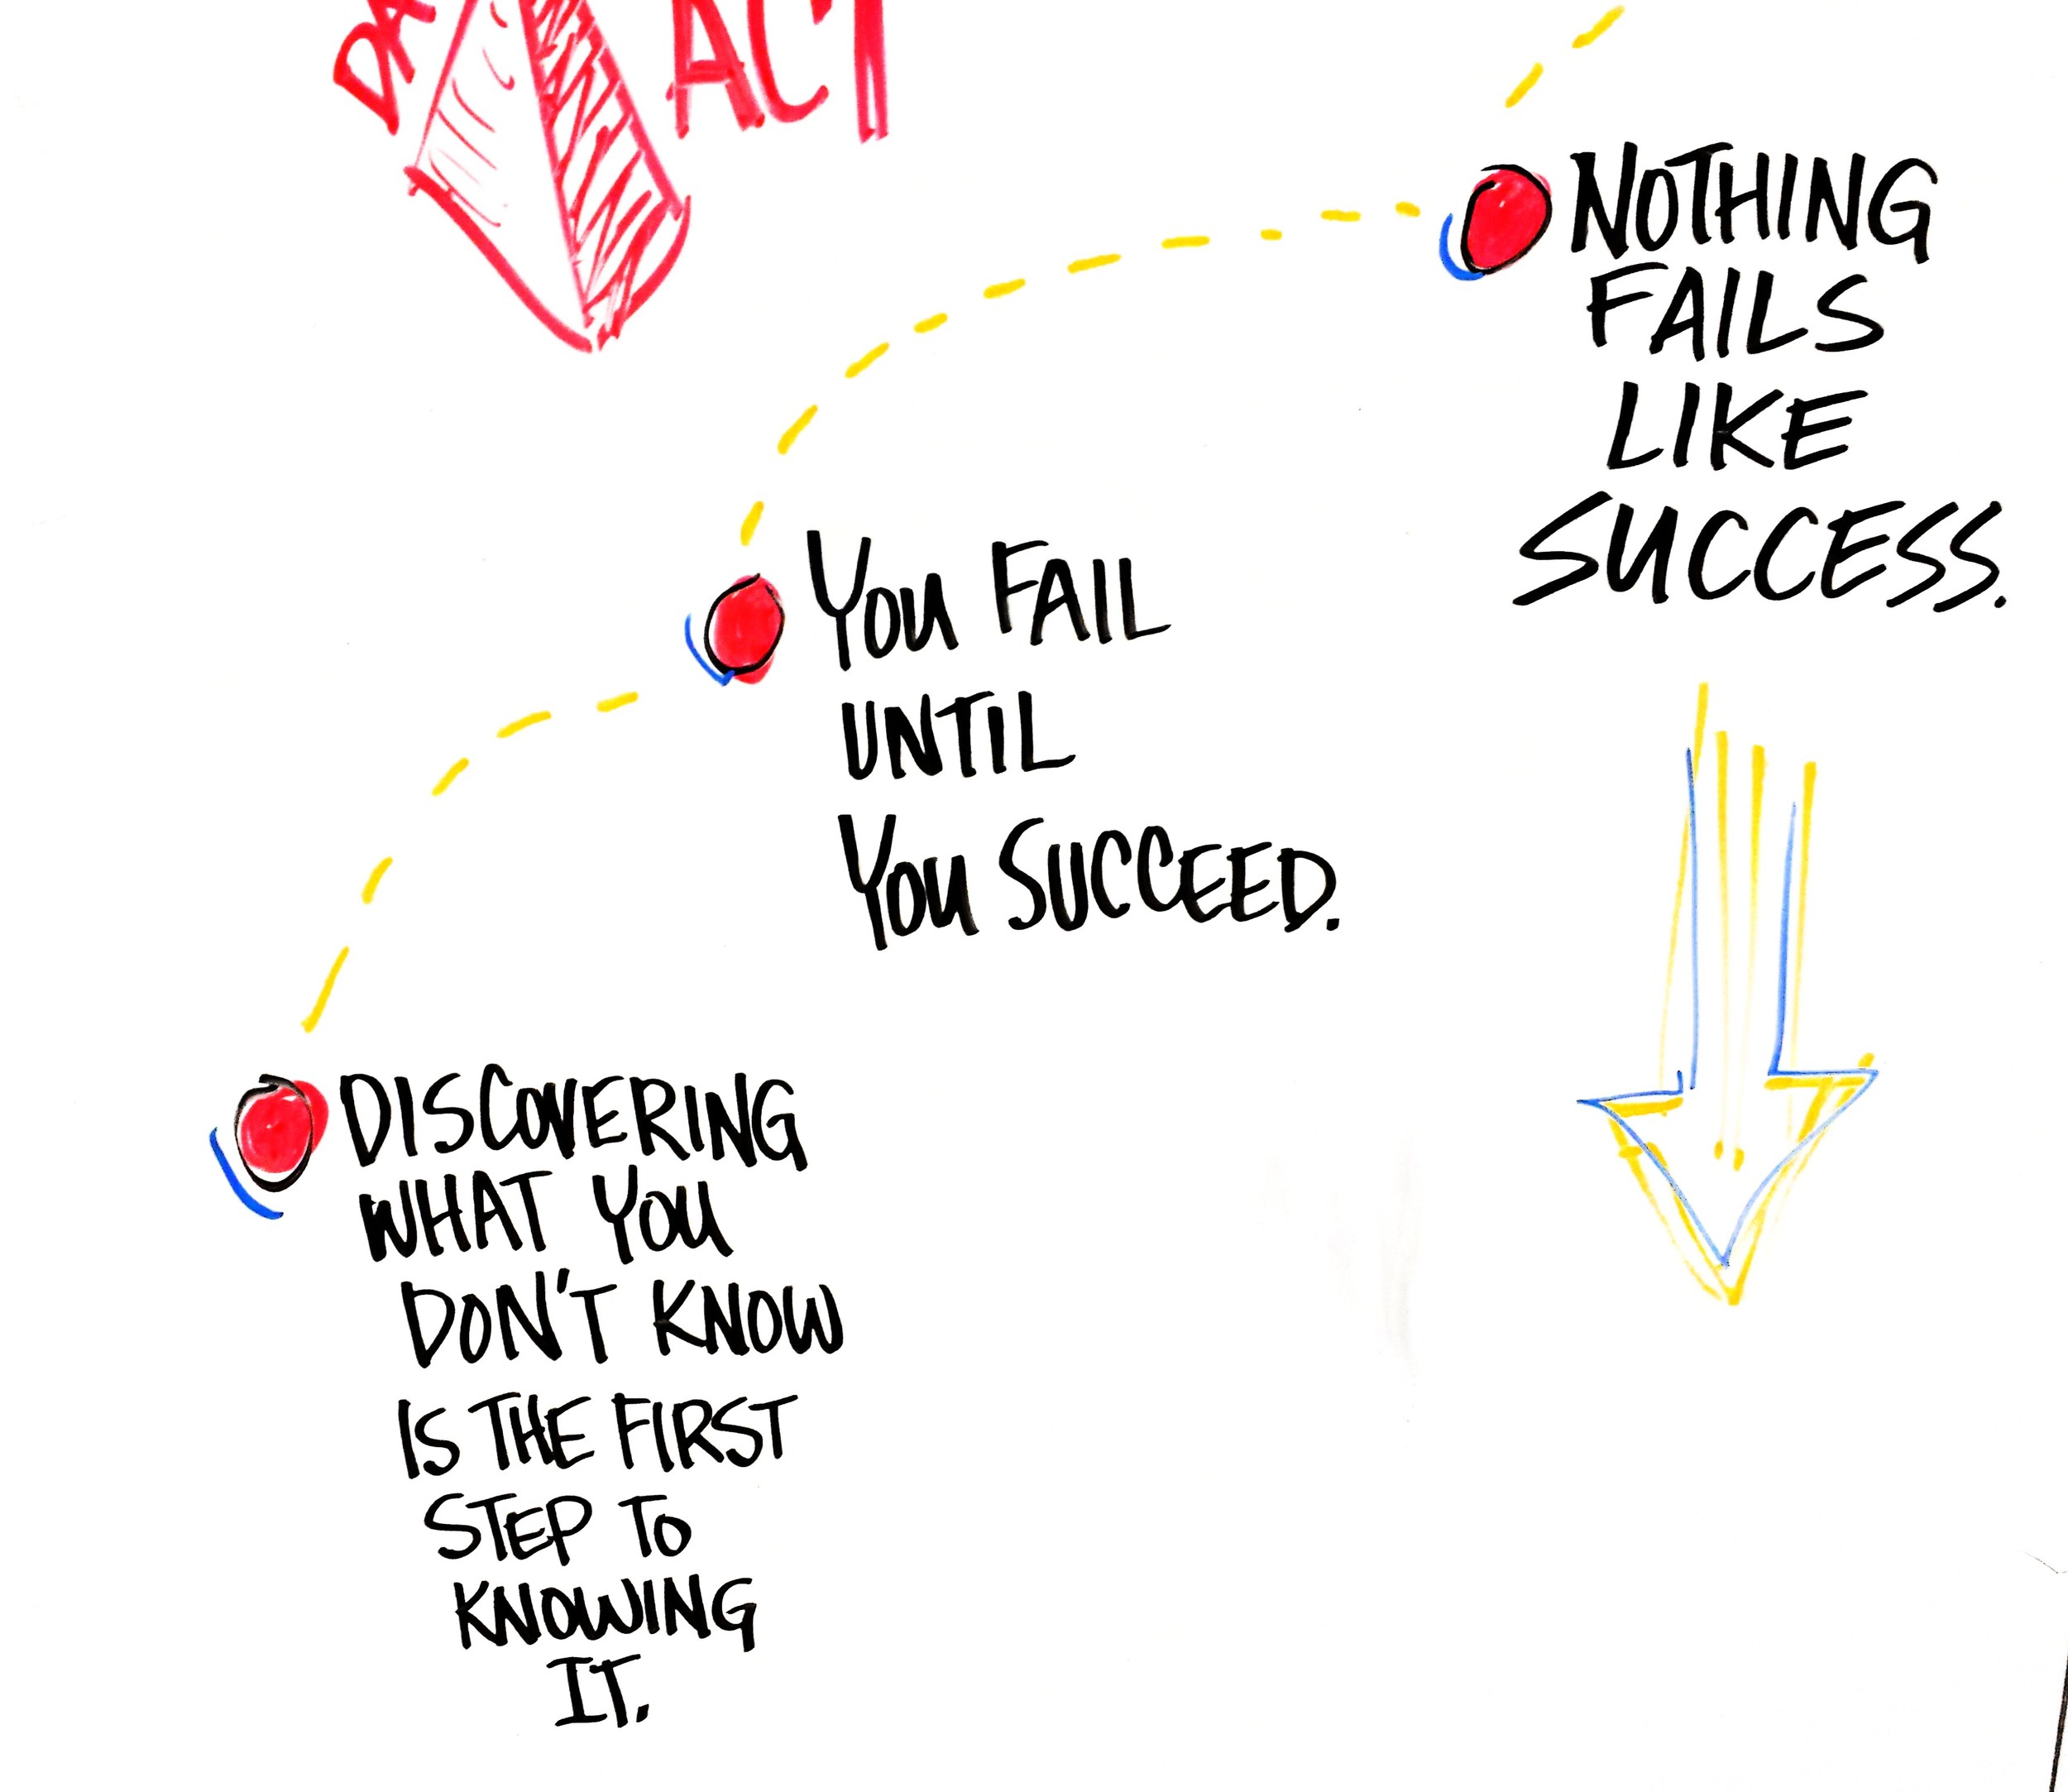 ACT
NOTHING
FAILS
LIKE
SUCCESS.
YOU FAIL
UNTIL
YOU SUCCEED.
DISCOVERING
WHAT YOU
DON'T KNOW
IS THE FIRST
STEP TO
KNOWING
IT.